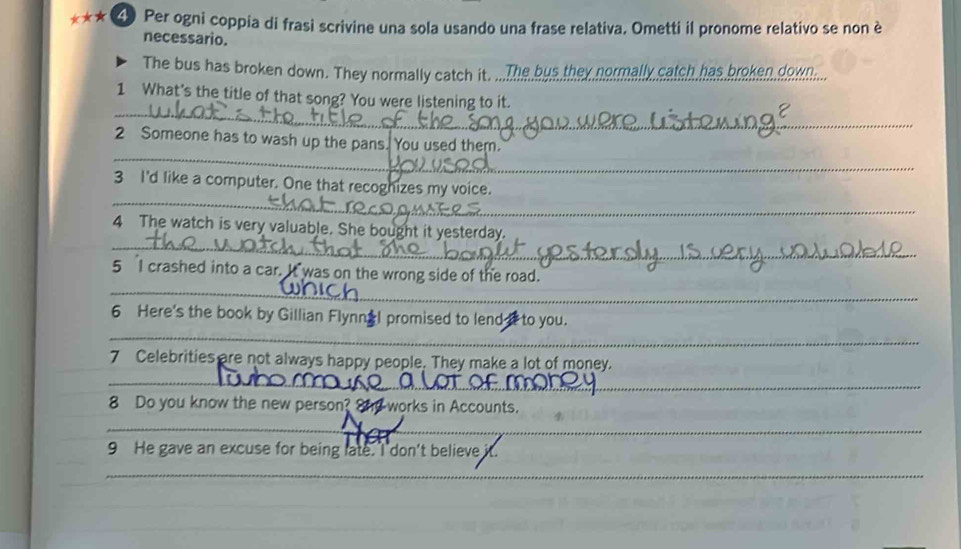 ★★★ 4 Per ogni coppia di frasi scrivine una sola usando una frase relativa. Ometti il pronome relativo se non è
necessario.
▶ The bus has broken down. They normally catch it. ...The bus they normally catch has broken down...
1 What's the title of that song? You were listening to it.
what's the title of the song you were listening?
2 Someone has to wash up the pans. You used them.
you used
3 I'd like a computer. One that recognizes my voice.
that recognizes
4 The watch is very valuable. She bought it yesterday.
the watch that she boght yesterday is very valuable
5 I crashed into a car. It was on the wrong side of the road.
which
6 Here's the book by Gillian Flynn. I promised to lend it to you.
7 Celebrities are not always happy people. They make a lot of money.
who make a lot of money
8 Do you know the new person? She works in Accounts.
9 He gave an excuse for being late. I don't believe it.